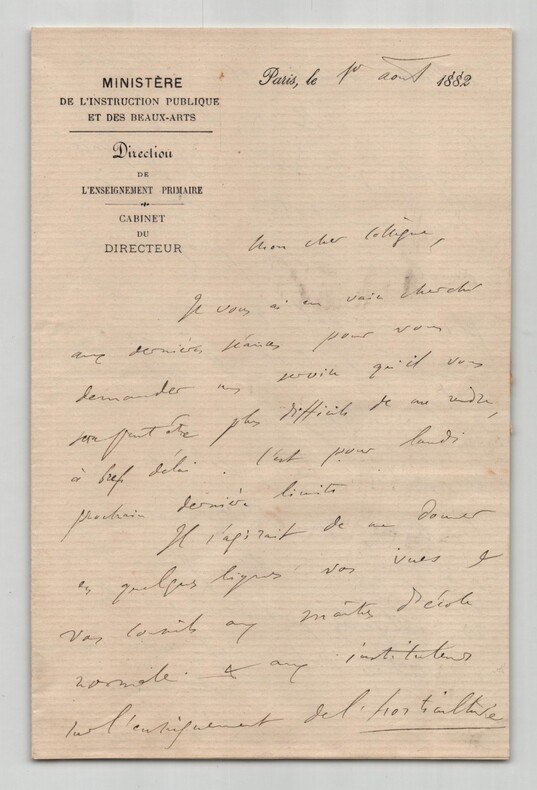 MINISTÈRE
DE L'INSTRUCTION PUBLIQUE
ET DES BEAUX-ARTS
Direction
DE
L'ENSEIGNEMENT PRIMAIRE
CABINET
DU
DIRECTEUR
Paris, le 1er août 1882
Mon cher Collègue,
Je vous ai en vain cherché
aux dernières séances pour vous
demander un service qu'il vous
sera peut être plus difficile de me rendre,
à bref délai. C'est pour lundi
prochain dernière limite
Il s'agirait de me donner
en quelques lignes vos vues &
vos conseils aux maîtres d'école
normale & aux instituteurs
sur l'enseignement de l'horticulture